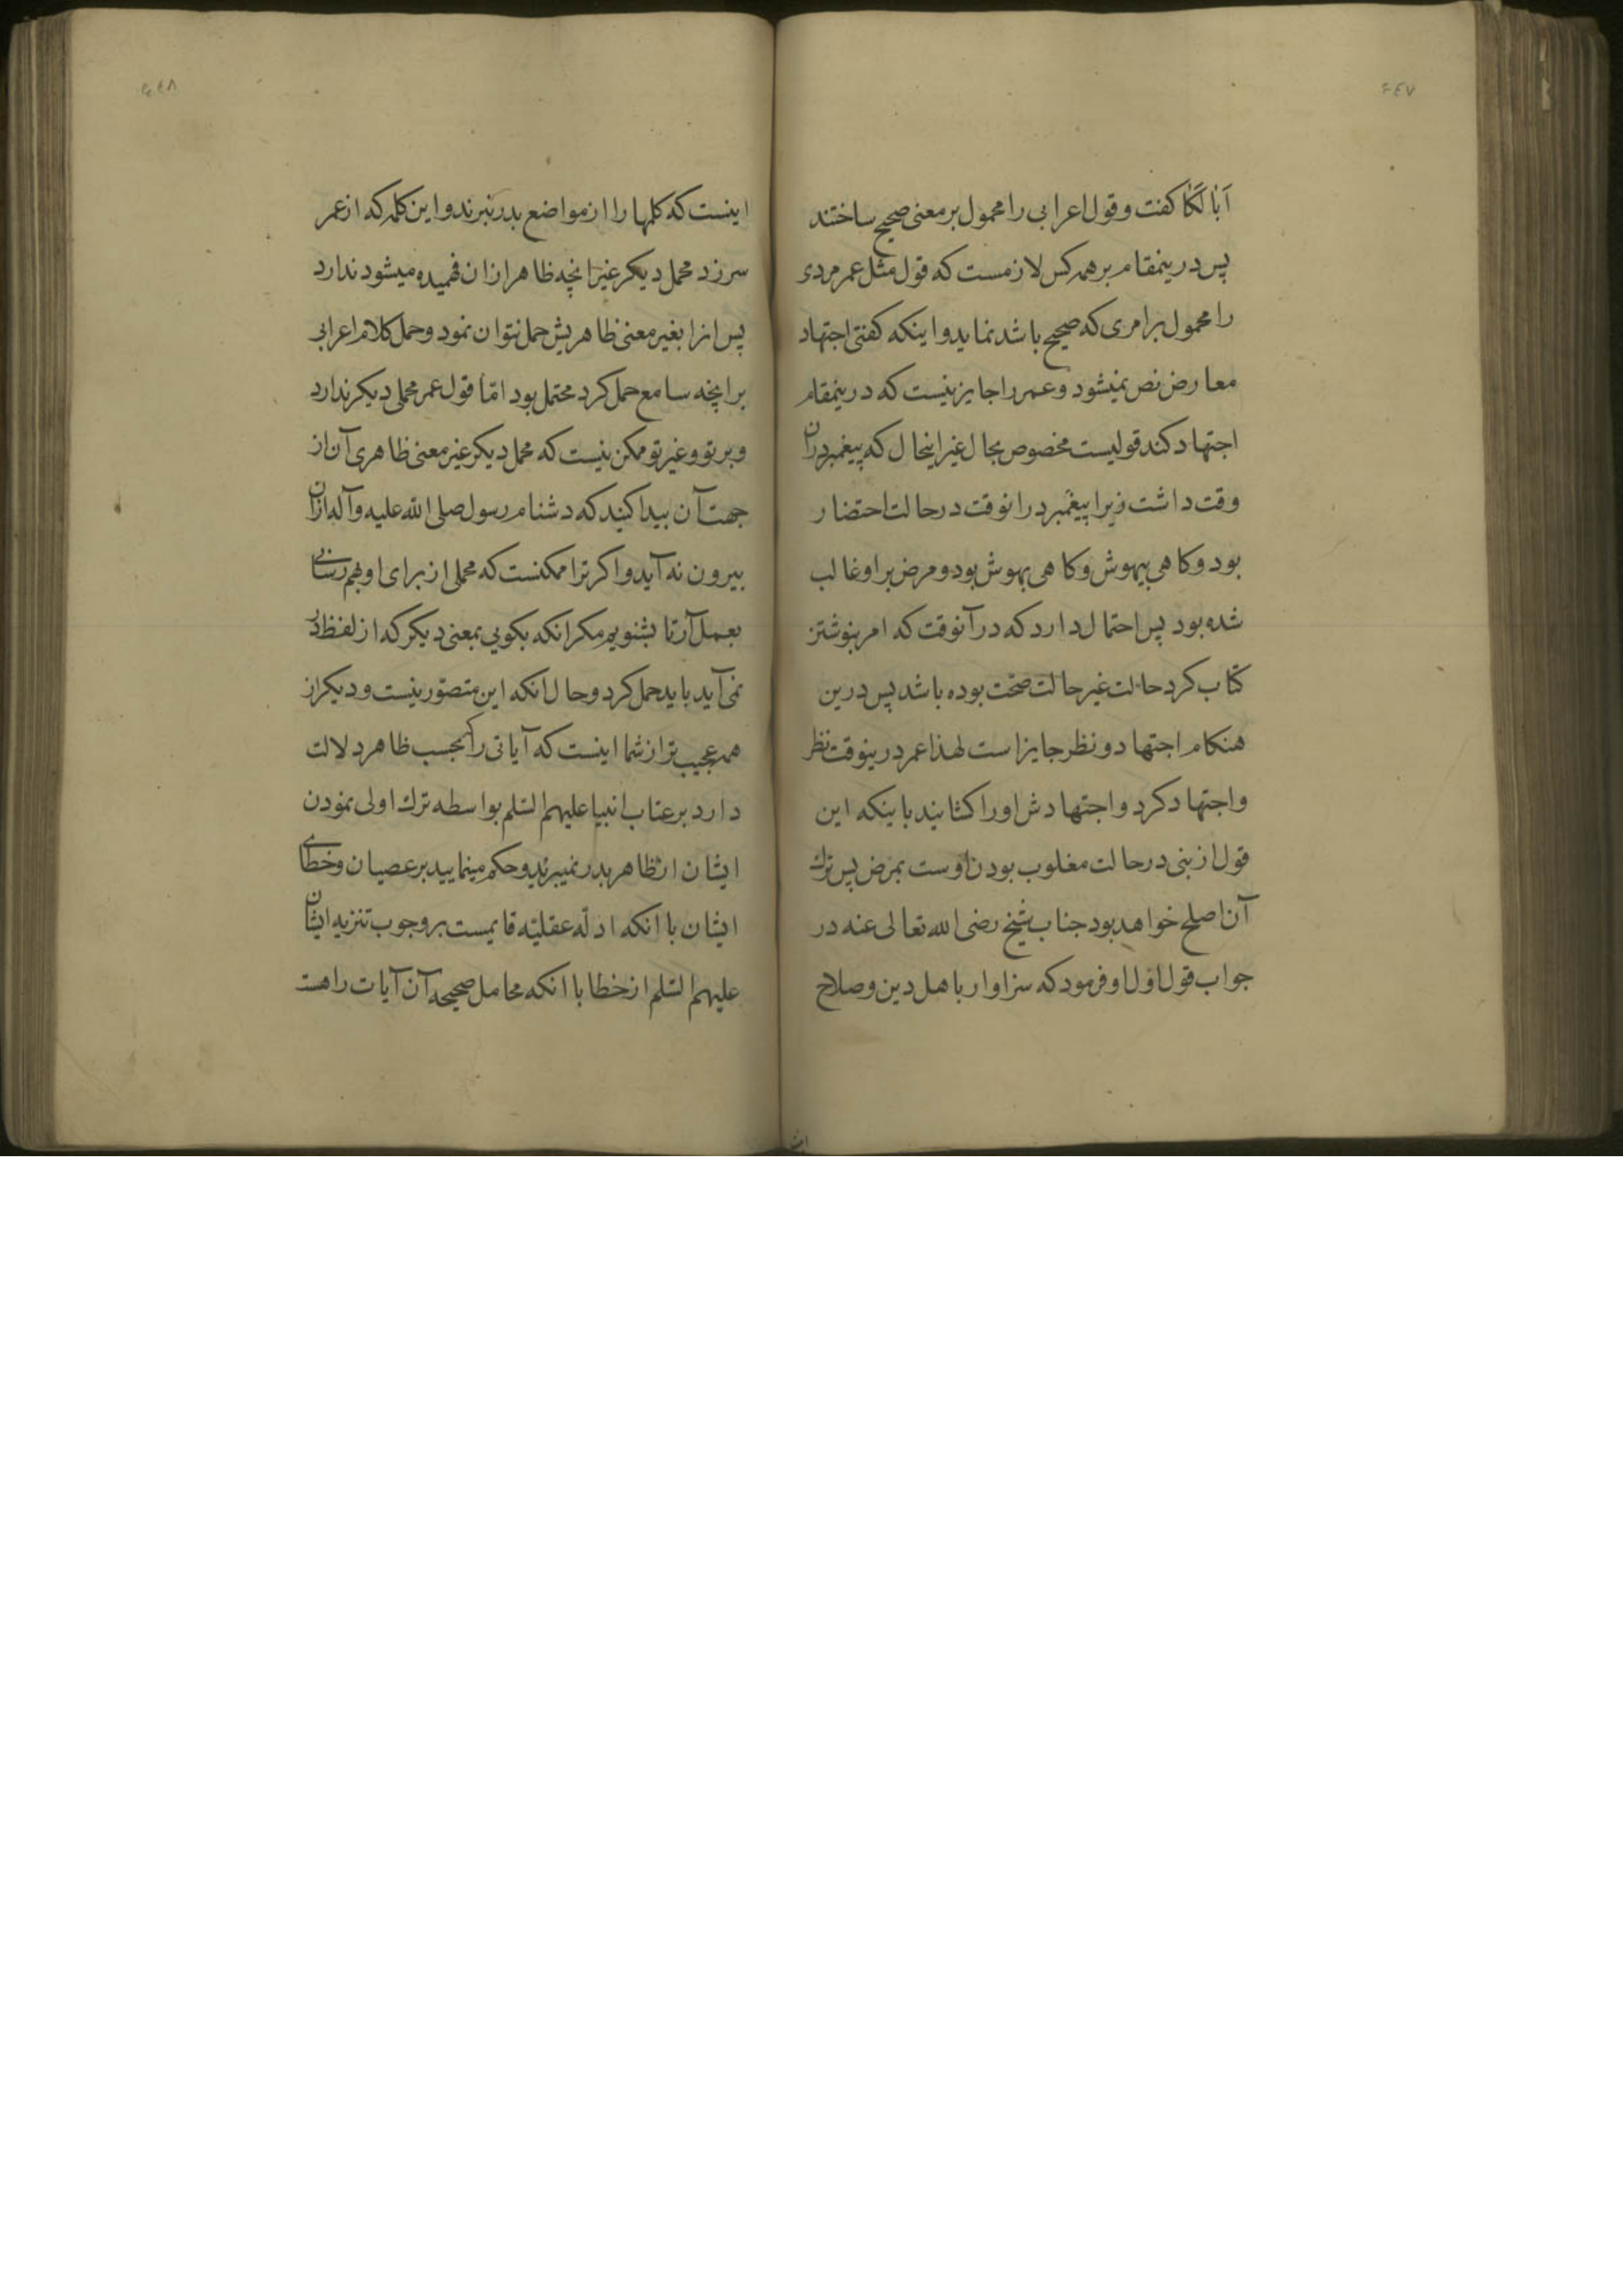 ٤٤٧
اَبا لَکَا کفت و قول اعرابی را محمول بر معنی صحیح ساختند
پس درینمقام بر همه کس لازمست که قول مثل عمر مردی
را محمول بر امری که صحیح باشد نماید و اینکه کفتی اجتهاد
معارض نص نمیشود و عمر را جایز نیست که درینمقام
اجتهاد کند قولیست مخصوص بحال غیر اینحال که پیغمبر در ان
وقت داشت زیرا پیغمبر در انوقت در حالت احتضار
بود و کاهی بیهوش و کاهی بهوش بود و مرض بر او غالب
شده بود پس احتمال دارد که در آنوقت که امر بنوشتن
کتاب کرد حالت غیر حالت صحّت بوده باشد پس درین
هنکام اجتهاد و نظر جایز است لهذا عمر درینوقت نظر
و اجتهاد کرد و اجتهادش او را کشانید باینکه این
قول از نبی در حالت مغلوب بودن اوست بمرض پس ترك
آن اصلح خواهد بود جناب شیخ رضی الله تعالی عنه در
جواب قول اوّل او فرمود که سزاوار باهل دین و صلاح
٤٤٨
اینست که کلمها را از مواضع بدر نبرند و این کلمه که از عمر
سرزد محمل دیکر غیر انچه ظاهر از ان فهمیده میشود ندارد
پس انرا بغیر معنی ظاهریش حمل نتوان نمود و حمل کلام اعرابی
بر انچه سامع حمل کرد محتمل بود امّا قول عمر محملی دیکر ندارد
و بر تو و غیر تو ممکن نیست که محمل دیکر غیر معنی ظاهری آن از
جهت آن پیدا کنید که دشنام رسول صلی الله علیه و آله از ان
بیرون نه آید و اکر ترا ممکنست که محملی از برای او بهم رسانی
بعمل آر تا بشنویم مکر انکه بکویی بمعنی دیکر که از لفظ در
نمی آید باید حمل کرد و حال انکه این متصوّر نیست و دیکر از
همه عجیب تر از شما اینست که آیاتی را که بحسب ظاهر دلالت
دارد بر عتاب انبیا علیهم السّلم بواسطه ترك اولی نمودن
ایشان از ظاهر بدر نمیبرید و حکم مینمایید بر عصیان و خطای
ایشان با انکه ادلّه عقلیّه قایمست بر وجوب تنزیه ایشان
علیهم السّلم از خطا با انکه محامل صحیحه آن آیات را هست